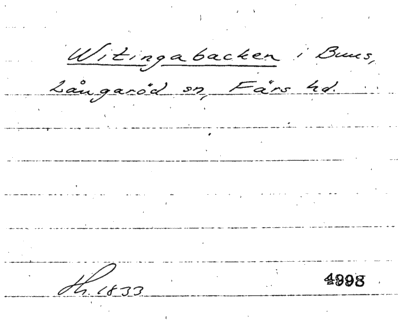 Witingabacken i Buus,
Långaröd sn, Färs hd.
Hh. 1833 4998